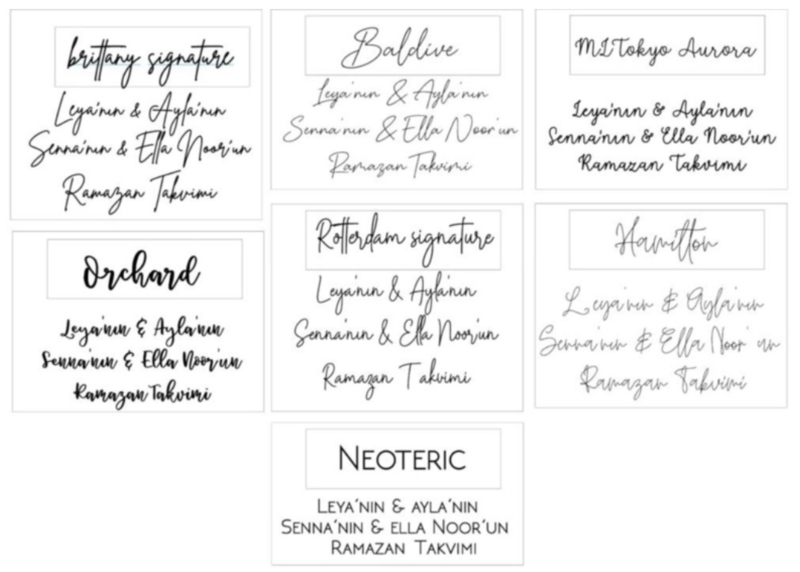 brittany signature
Leya'nın & Ayla'nın
Senna'nın & Ella Noor'un
Ramazan Takvimi
Baldive
Leya'nın & Ayla'nın
Senna'nın & Ella Noor'un
Ramazan Takvimi
MLTokyo Aurora
Leya'nın & Ayla'nın
Senna'nın & Ella Noor'un
Ramazan Takvimi
Orchard
Leya'nın & Ayla'nın
Senna'nın & Ella Noor'un
Ramazan Takvimi
Rotterdam signature
Leya'nın & Ayla'nın
Senna'nın & Ella Noor'un
Ramazan Takvimi
Hamilton
Leya'nın & Ayla'nın
Senna'nın & Ella Noor'un
Ramazan Takvimi
NEOTERIC
LEYA'NIN & AYLA'NIN
SENNA'NIN & ELLA NOOR'UN
RAMAZAN TAKVIMI